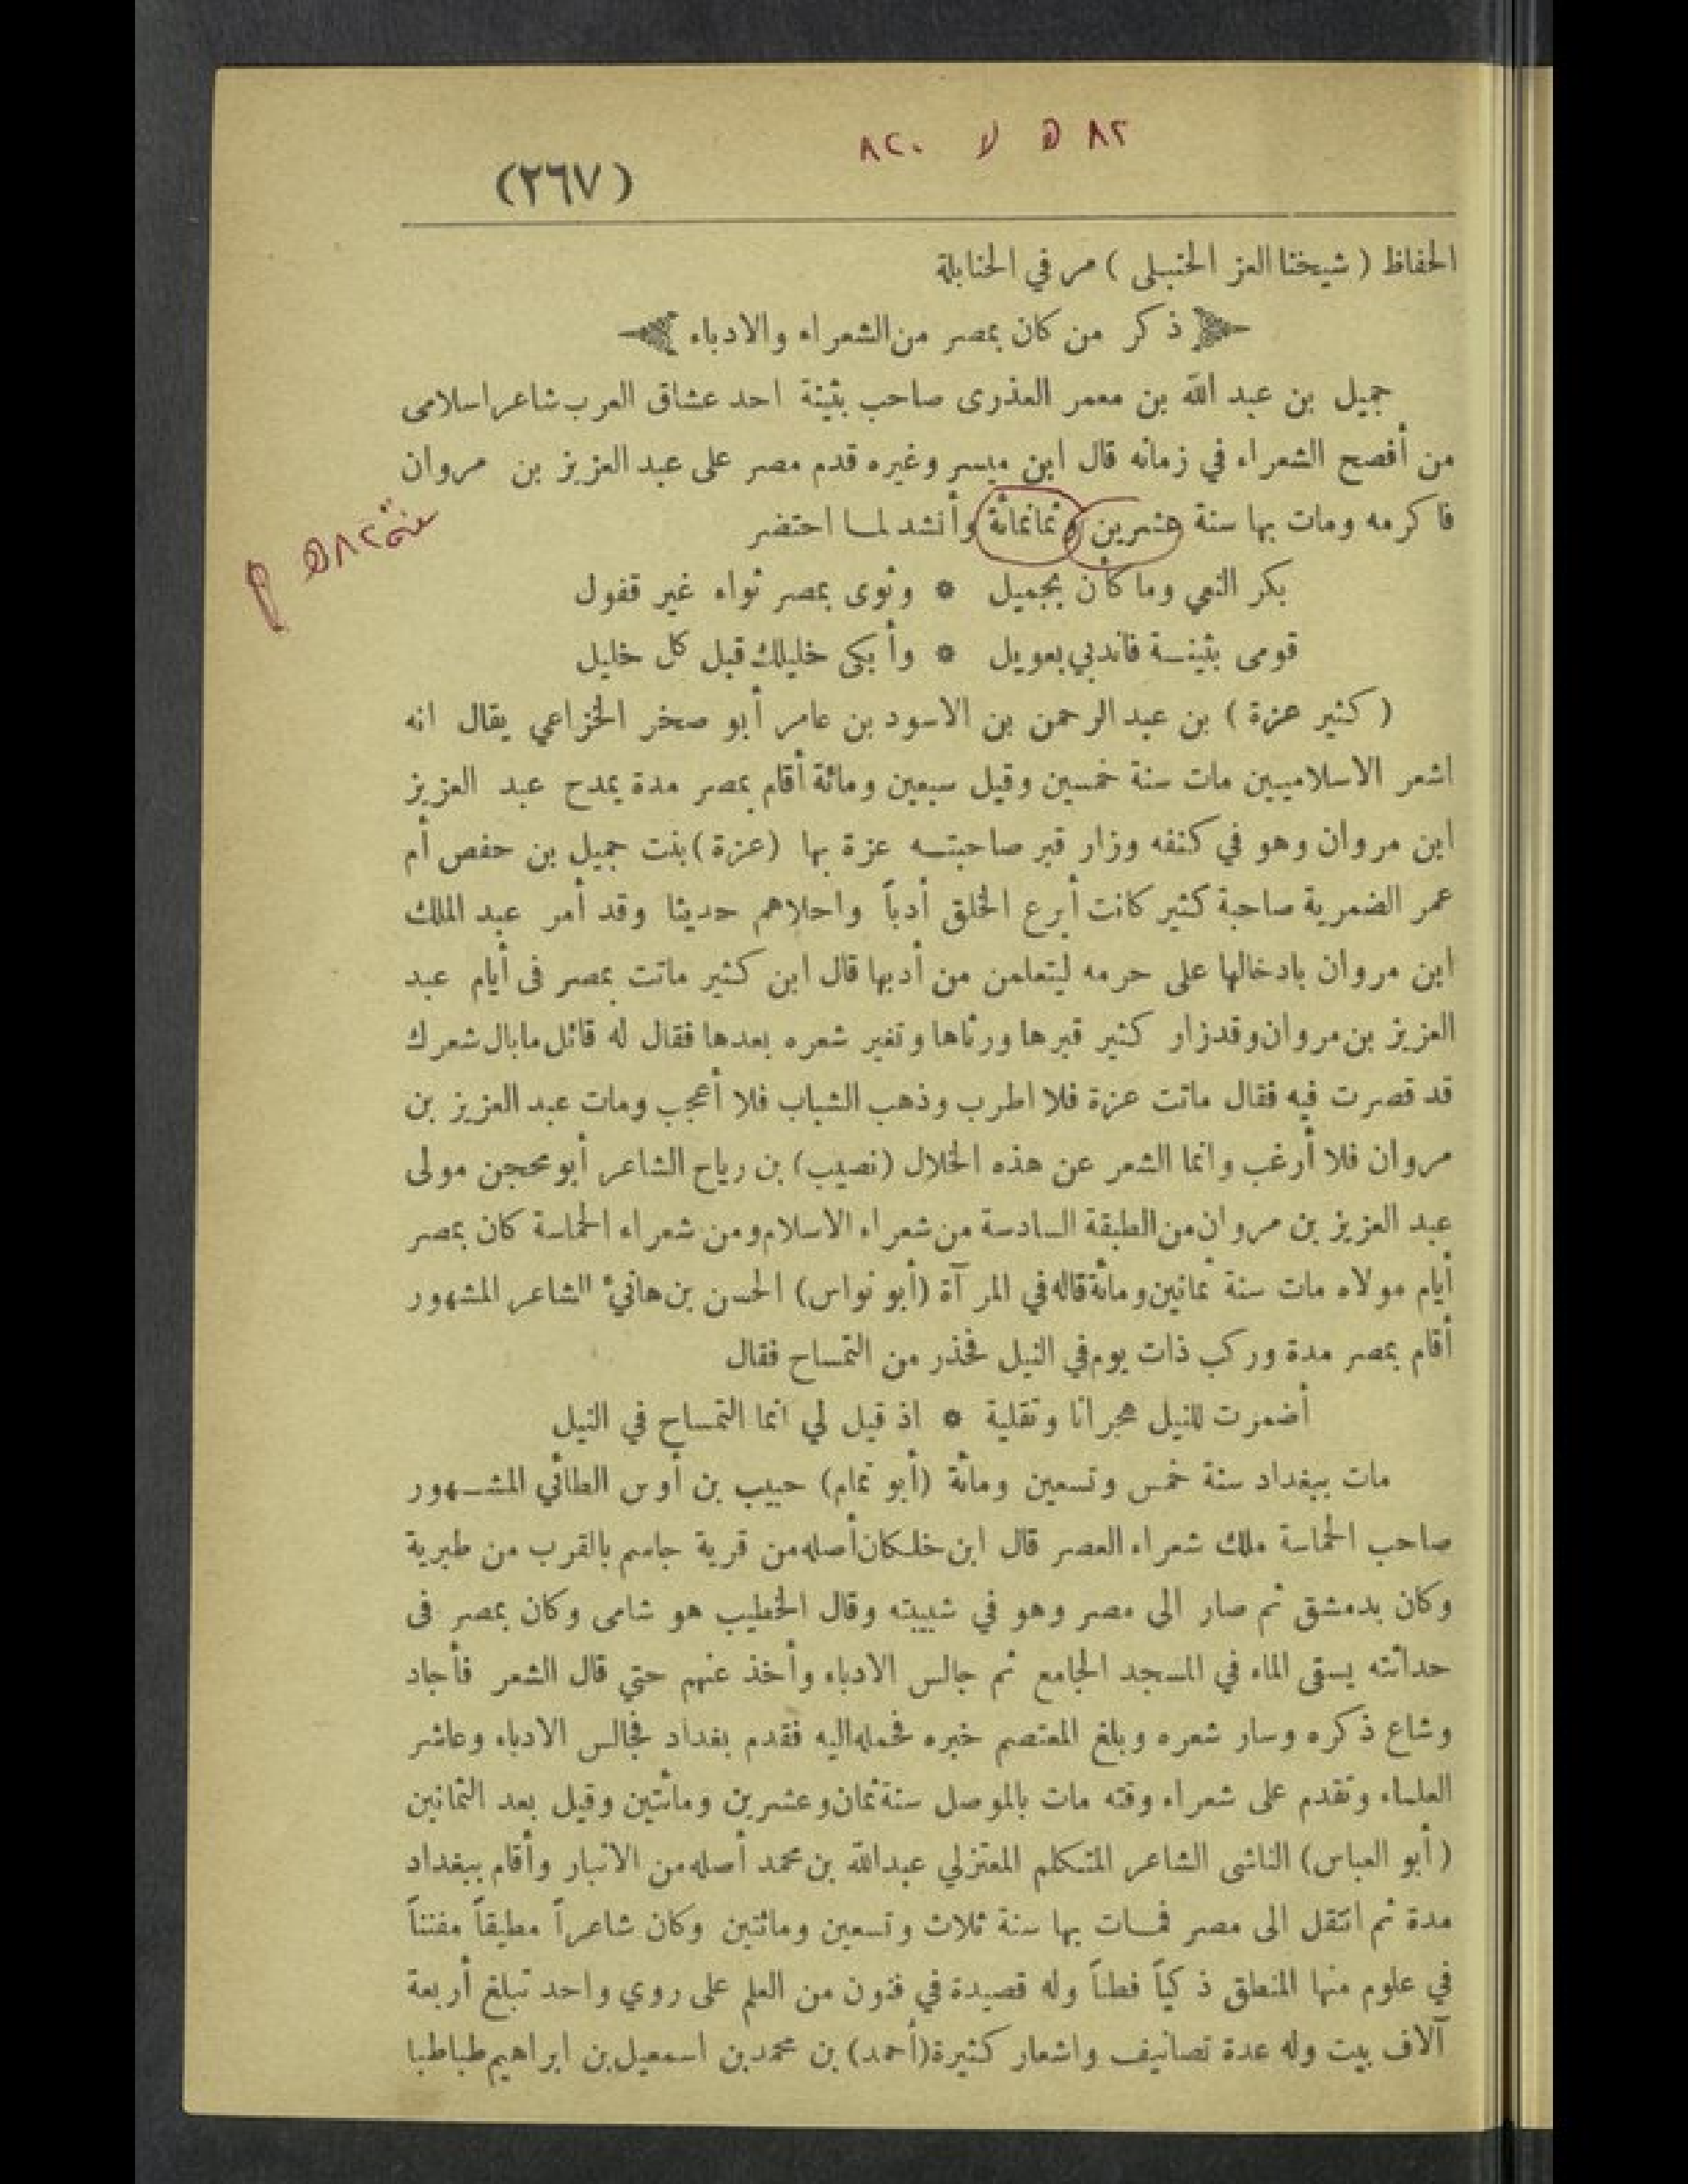 ٨٢ ه لا ٨٢٠
(٢٦٧)
الحفاظ ( شيخنا العز الحنبلى ) مر في الحنابلة
ذكر من كان بمصر من الشعراء والادباء
جميل بن عبد الله بن معمر العذرى صاحب بثينة احد عشاق العرب شاعر اسلامى
من أفصح الشعراء في زمانه قال ابن ميسر وغيره قدم مصر على عبد العزيز بن مروان
فاكرمه ومات بها سنة عشرين وثمانمائة وأنشد لما احتضر
سنة ٨٢ ه م
بكر النعي وما كأن بجميل * وثوى بمصر ثواء غير قفول
قومى بثينـة فاندبي بعويل * وأبكى خليلك قبل كل خليل
( كثير عزة ) بن عبد الرحمن بن الاسود بن عامر أبو صخر الخزاعي يقال انه
اشعر الاسلاميين مات سنة خمسين وقيل سبعين ومائة أقام بمصر مدة يمدح عبد العزيز
ابن مروان وهو في كنفه وزار قبر صاحبتـه عزة بها (عزة) بنت جميل بن حفص أم
عمر الضمرية صاحبة كثير كانت أبرع الخلق أدباً واحلاهم حديثا وقد أمر عبد الملك
ابن مروان بادخالها على حرمه ليتعلمن من أدبها قال ابن كثير ماتت بمصر فى أيام عبد
العزيز بن مروان وقد زار كثير قبرها ورثاها وتغير شعره بعدها فقال له قائل مابال شعرك
قد قصرت فيه فقال ماتت عزة فلا اطرب وذهب الشباب فلا أعجب ومات عبد العزيز بن
مروان فلا أرغب وانما الشعر عن هذه الخلال (نصيب) بن رياح الشاعر أبو محجن مولى
عبد العزيز بن مروان من الطبقة السادسة من شعراء الاسلام ومن شعراء الحماسة كان بمصر
أيام مولاه مات سنة ثمانين ومائة قاله في المرآة (أبو نواس) الحسن بن هانئ الشاعر المشهور
أقام بمصر مدة وركب ذات يوم في النيل فحذر من التمساح فقال
أضمرت للنيل هجرانا وتقلية * اذ قيل لي انما التمساح في النيل
مات ببغداد سنة خمس وتسعين ومائة (أبو تمام) حبيب بن أوس الطائي المشـهور
صاحب الحماسة ملك شعراء العصر قال ابن خلكان أصله من قرية جاسم بالقرب من طبرية
وكان بدمشق ثم صار الى مصر وهو في شبيبته وقال الخطيب هو شامى وكان بمصر فى
حداثته يسقى الماء في المسجد الجامع ثم جالس الادباء وأخذ عنهم حتي قال الشعر فأجاد
وشاع ذكره وسار شعره وبلغ المعتصم خبره فحمله اليه فقدم بغداد فجالس الادباء وعاشر
العلماء وتقدم على شعراء وقته مات بالموصل سنة ثمان وعشرين ومائتين وقيل بعد الثمانين
(أبو العباس) الناشى الشاعر المتكلم المعتزلي عبد الله بن محمد أصله من الانبار وأقام ببغداد
مدة ثم انتقل الى مصر فمـات بها سنة ثلاث وتسعين ومائتين وكان شاعراً مطيقاً مفنناً
في علوم منها المنطق ذكياً فطناً وله قصيدة في فنون من العلم على روي واحد تبلغ أربعة
آلاف بيت وله عدة تصانيف واشعار كثيرة (أحمد) بن محمد بن اسمعيل بن ابراهيم طباطبا